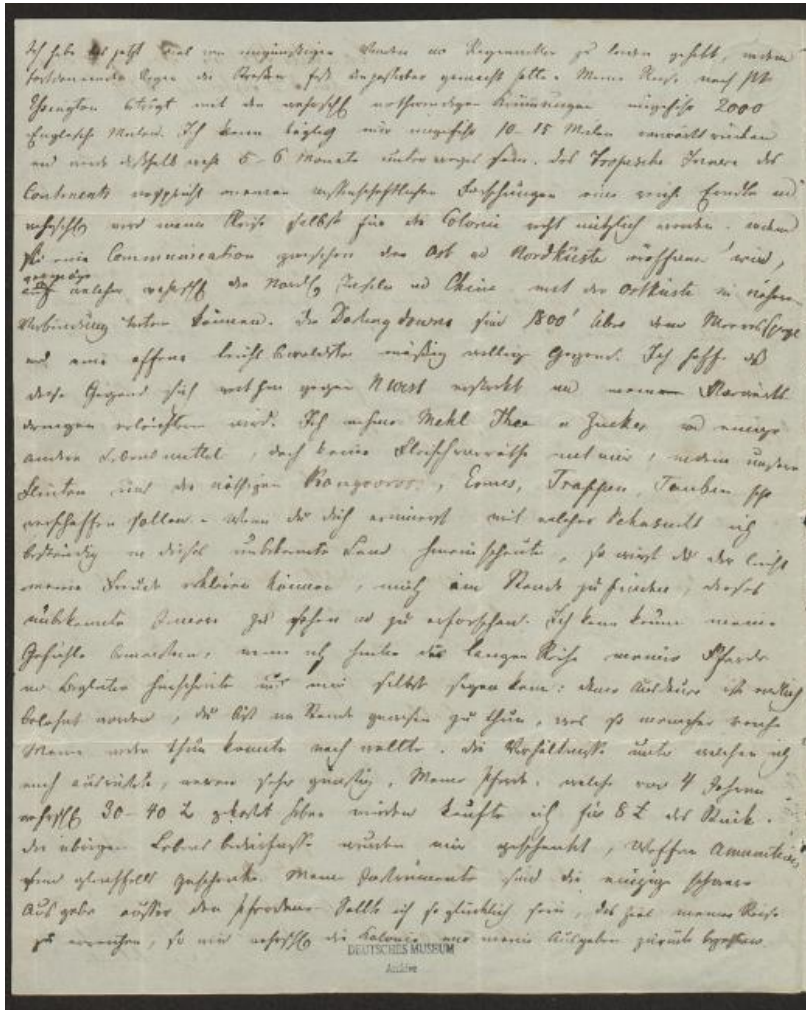 Ich habe bis jetzt viel von ungünstigen Winden und Regenwetter zu leiden gehabt, indem
fortdauernder Regen die Straßen fast unpassirbar gemacht hatte. Meine Reise nach Port
Essington beträgt mit den wahrschl nothwendigen Krümmungen ungefähr 2000
Englische Meilen. Ich kann täglich nur ungefähr 10-15 Meilen vorwärts rücken
und werde deßhalb wohl 5-6 Monate unterwegs sein. Das Tropische Innere des
Continents verspricht meinen wissenschaftlichen Forschungen eine reiche Erndte und
wahrschl wird meine Reise selbst für die Colonie recht nützlich werden, indem
sie eine Communication zwischen der Ost und Nordküste eröffnen wird,
vermöge
welcher wahrschl die Inseln und China mit der Ostküste in nähere
Verbindung treten können. Die Darling downs sind 1800' über dem Meeresspiegel
und eine offene leicht bewaldete mäßig wellige Gegend. Ich hoffe daß
diese Gegend sich weithin gegen NWest erstreckt und mein Vorwärts
dringen erleichtern wird. Ich nehme Mehl Thee u Zucker und einige
andere Lebensmittel, doch keine Fleischvorräthe mit mir, indem unsere
Flinten uns die nöthigen Kangooroos, Emues, Trappen, Tauben
verschaffen sollen. Wenn du dich erinnerst mit welcher Sehnsucht ich
beständig in dieses unbekannte Land hineinschaute, so wirst du dir leicht
meine Freude erklären können, mich im Stande zu finden, dieses
unbekannte Innere zu sehen und zu erforschen. Ich kann kaum meine
Gefühle bemeistern, wenn ich hinter der langen Reihe meiner Pferde
und Begleiter herschreite und mir selbst sagen kann: deine Ausdauer ist endlich
belohnt worden, du bist im Stande gewesen zu thun, was so mancher reiche
Mann weder thun konnte noch wollte. Die Verhältnisse unter welchen ich
mich ausrüstete, waren sehr günstig. Meine Pferde, welche vor 4 Jahren
wahrschl 30-40 £ gekostet haben würden kaufte ich für 8 £ das Stück.
Die übrigen Lebensbedürfnisse wurden mir geschenkt, Waffen Amunition
sind gleichfalls Geschenke. Meine Instrumente sind die einzige schwere
Ausgabe ausser den Pferden. Sollte ich so glücklich sein, das Ziel meiner Reise
zu erreichen, so wird wahrschl die Kolonie mir meine Ausgaben zurück
DEUTSCHES MUSEUM
Archiv